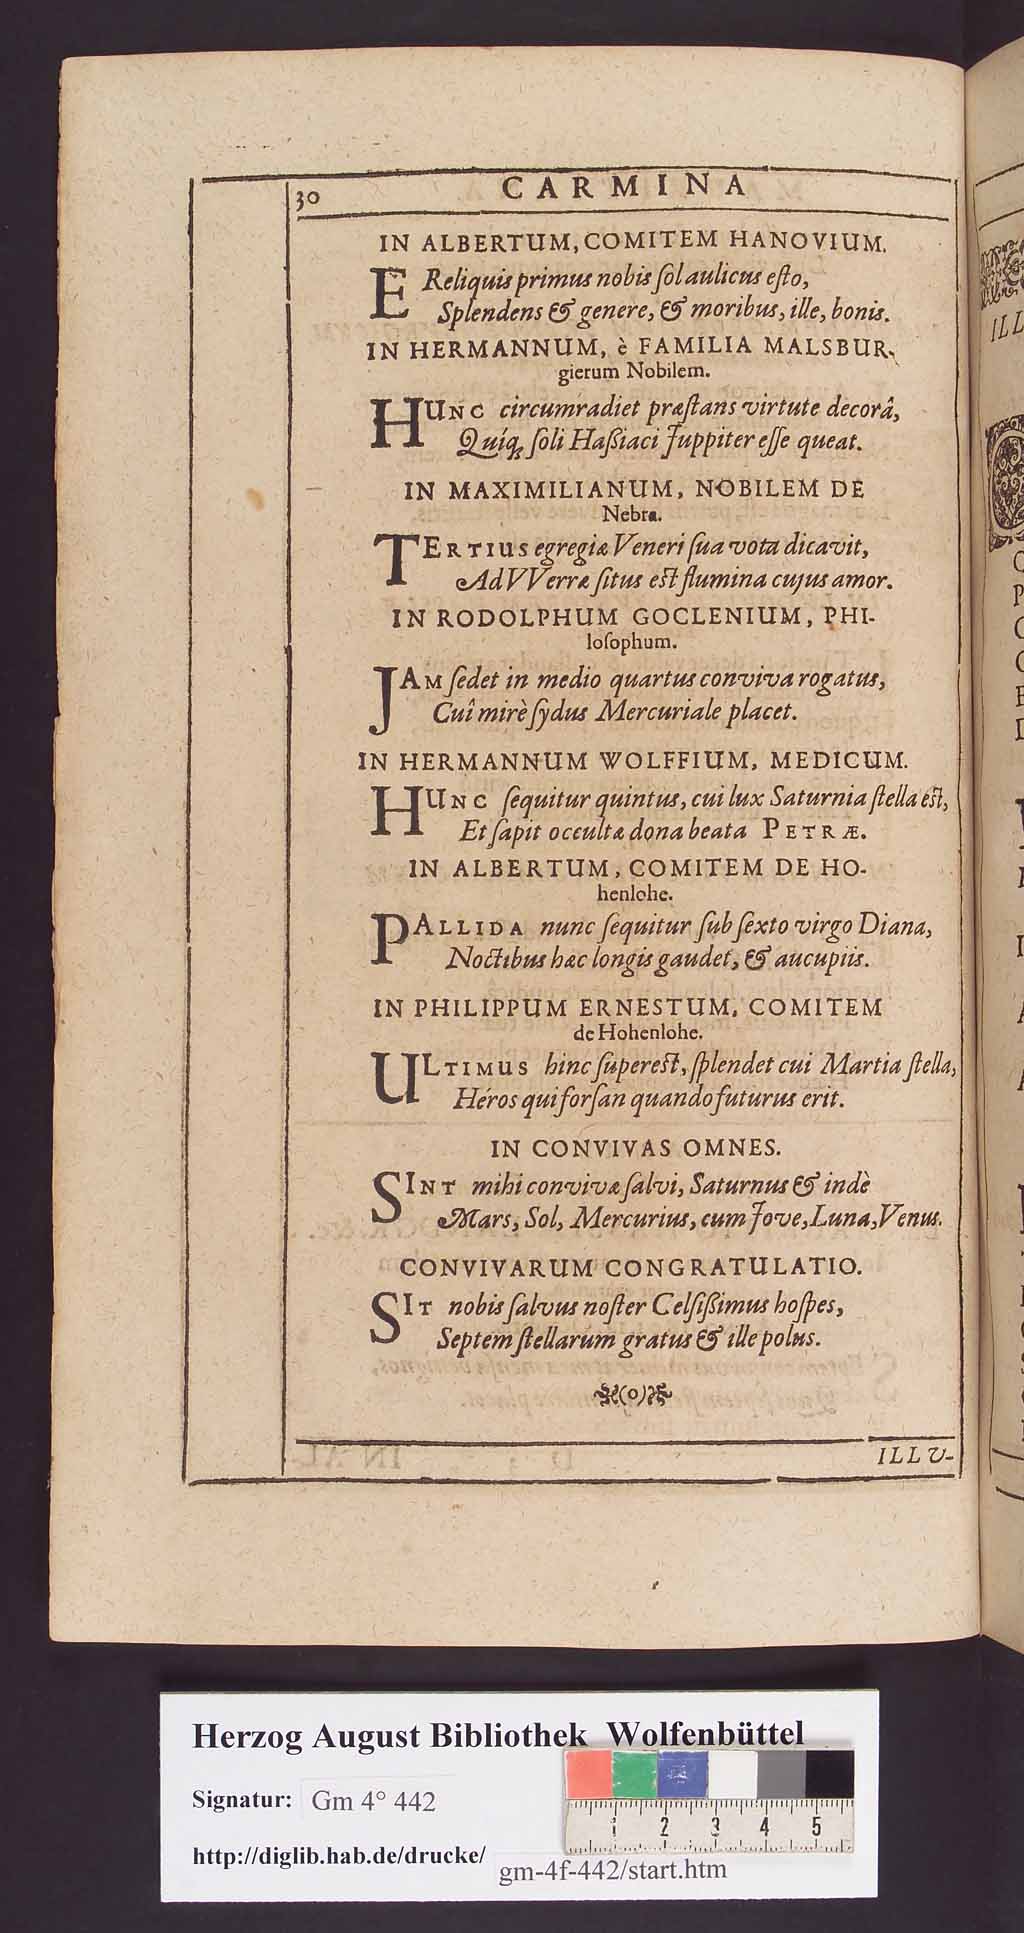 30 CARMINA
IN ALBERTUM, COMITEM HANOVIUM.
E Reliquis primus nobis ſol aulicus eſto,
Splendens & genere, & moribus, ille, bonis.
IN HERMANNUM, è FAMILIA MALSBUR-
gierum Nobilem.
HUNC circumradiet præſtans virtute decorâ,
Quíq; ſoli Haßiaci Juppiter eſſe queat.
IN MAXIMILIANUM, NOBILEM DE
Nebra.
TERTIUS egregiæ Veneri ſua vota dicavit,
Ad VVerræ ſitus eſt flumina cujus amor.
IN RODOLPHUM GOCLENIUM, PHI-
loſophum.
JAM ſedet in medio quartus conviva rogatus,
Cuî mirè ſydus Mercuriale placet.
IN HERMANNUM WOLFFIUM, MEDICUM.
HUNC ſequitur quintus, cui lux Saturnia ſtella eſt,
Et ſapit occultæ dona beata PETRÆ.
IN ALBERTUM, COMITEM DE HO-
henlohe.
PALLIDA nunc ſequitur ſub ſexto virgo Diana,
Noctibus hæc longis gaudet, & aucupiis.
IN PHILIPPUM ERNESTUM, COMITEM
de Hohenlohe.
ULTIMUS hinc ſupereſt, ſplendet cui Martia ſtella,
Héros qui forſan quando futurus erit.
IN CONVIVAS OMNES.
SINT mihi convivæ ſalvi, Saturnus & indè
Mars, Sol, Mercurius, cum Jove, Luna, Venus.
CONVIVARUM CONGRATULATIO.
SIT nobis ſalvus noſter Celſißimus hoſpes,
Septem ſtellarum gratus & ille polus.
(o)
ILLU-
Herzog August Bibliothek Wolfenbüttel
Signatur: Gm 4° 442
http://diglib.hab.de/drucke/ gm-4f-442/start.htm
1 2 3 4 5